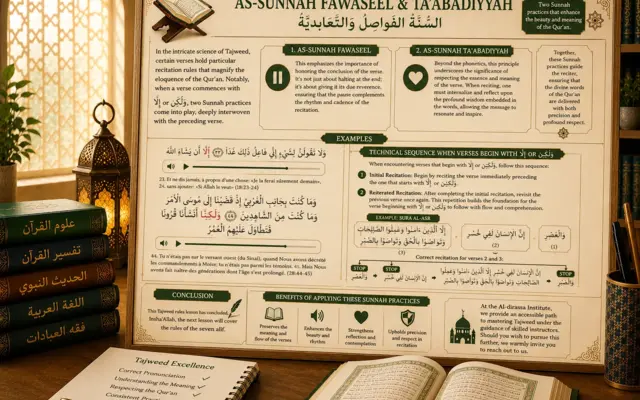 AS-SUNNAH FAWASEEL & TA'ABADIYYAH
السُّنَّة الفَواصِلُ وَالتَّعَابُدِيَّة
Two Sunnah
practices that enhance
the beauty and meaning
of the Qur'an.
In the intricate science of Tajweed,
certain verses hold particular
recitation rules that magnify the
eloquence of the Qur'an. Notably,
when a verse commences with
إِلَّا or وَلَٰكِن, two Sunnah practices
come into play, deeply interwoven
with the preceding verse.
1. AS-SUNNAH FAWASEEL
This emphasizes the importance of
honoring the conclusion of the verse.
It's not just about halting at the end;
it's about giving it its due reverence,
ensuring that the pause complements
the rhythm and cadence of the
recitation.
2. AS-SUNNAH TA'ABADIYYAH
Beyond the phonetics, this principle
underscores the significance of
respecting the essence and meaning
of the verse. When reciting, one
must internalize and reflect upon
the profound wisdom embedded in
the words, allowing the message to
resonate and inspire.
Together,
these Sunnah
practices guide
the reciter,
ensuring that
the divine words
of the Qur'an
are delivered
with both
precision and
profound respect.
EXAMPLES
وَلَا تَقُولَنَّ لِشَيْءٍ إِنِّي فَاعِلٌ ذَٰلِكَ غَدًا ﴿٢٣﴾ إِلَّا أَن يَشَاءَ اللَّهُ
23. Et ne dis jamais, à propos d'une chose: «Je la ferai sûrement demain»,
24. sans ajouter: «Si Allah le veut» (18:23-24)
وَمَا كُنتَ بِجَانِبِ الْغَرْبِيِّ إِذْ قَضَيْنَا إِلَىٰ مُوسَى الْأَمْرَ
وَمَا كُنتَ مِنَ الشَّاهِدِينَ ﴿٤٤﴾ وَلَٰكِنَّا أَنشَأْنَا قُرُونًا
فَتَطَاوَلَ عَلَيْهِمُ الْعُمُرُ
44. Tu n'étais pas sur le versant ouest (du Sinaï), quand Nous avons décrété
les commandements à Moïse; tu n'étais pas parmi les témoins. 45. Mais Nous
avons fait naître des générations dont l'âge s'est prolongé. (28:44-45)
TECHNICAL SEQUENCE WHEN VERSES BEGIN WITH إِلَّا or وَلَٰكِن
When encountering verses that begin with إِلَّا or وَلَٰكِن, follow this sequence:
1 Initial Recitation: Begin by reciting the verse immediately preceding
the one that starts with إِلَّا or وَلَٰكِن.
2 Reiterated Recitation: After completing the initial recitation, revisit the
previous verse once again. This repetition builds the foundation for the
verse beginning with إِلَّا or وَلَٰكِن to follow with flow and comprehension.
EXAMPLE: SURA AL-ASR
وَالْعَصْرِ
(1)
إِنَّ الْإِنسَانَ لَفِي خُسْرٍ
(2)
إِلَّا الَّذِينَ آمَنُوا وَعَمِلُوا الصَّالِحَاتِ
وَتَوَاصَوْا بِالْحَقِّ وَتَوَاصَوْا بِالصَّبْرِ
(3)
Correct recitation for verses 2 and 3:
STOP
STOP
STOP
وَالْعَصْرِ
إِنَّ الْإِنسَانَ لَفِي خُسْرٍ
إِنَّ الْإِنسَانَ لَفِي خُسْرٍ
CONCLUSION
This Tajweed rules lesson has concluded.
Insha'Allah, the next lesson will cover
the rules of the seven alif.
BENEFITS OF APPLYING THESE SUNNAH PRACTICES
Preserves the
meaning and
flow of the verses
Enhances the
beauty and
rhythm
Strengthens
reflection and
contemplation
Upholds precision
and respect
in recitation
At the Al-dirassa Institute,
we provide an accessible path
to mastering Tajweed under the
guidance of skilled instructors.
Should you wish to pursue this
further, we warmly invite
you to reach out to us.
علوم القرآن
تفسير القرآن
الحديث النبوي
اللغة العربية
فقه العبادات
Tajweed Excellence
Correct Pronunciation
Understanding the Meaning
Respecting the Qur'an